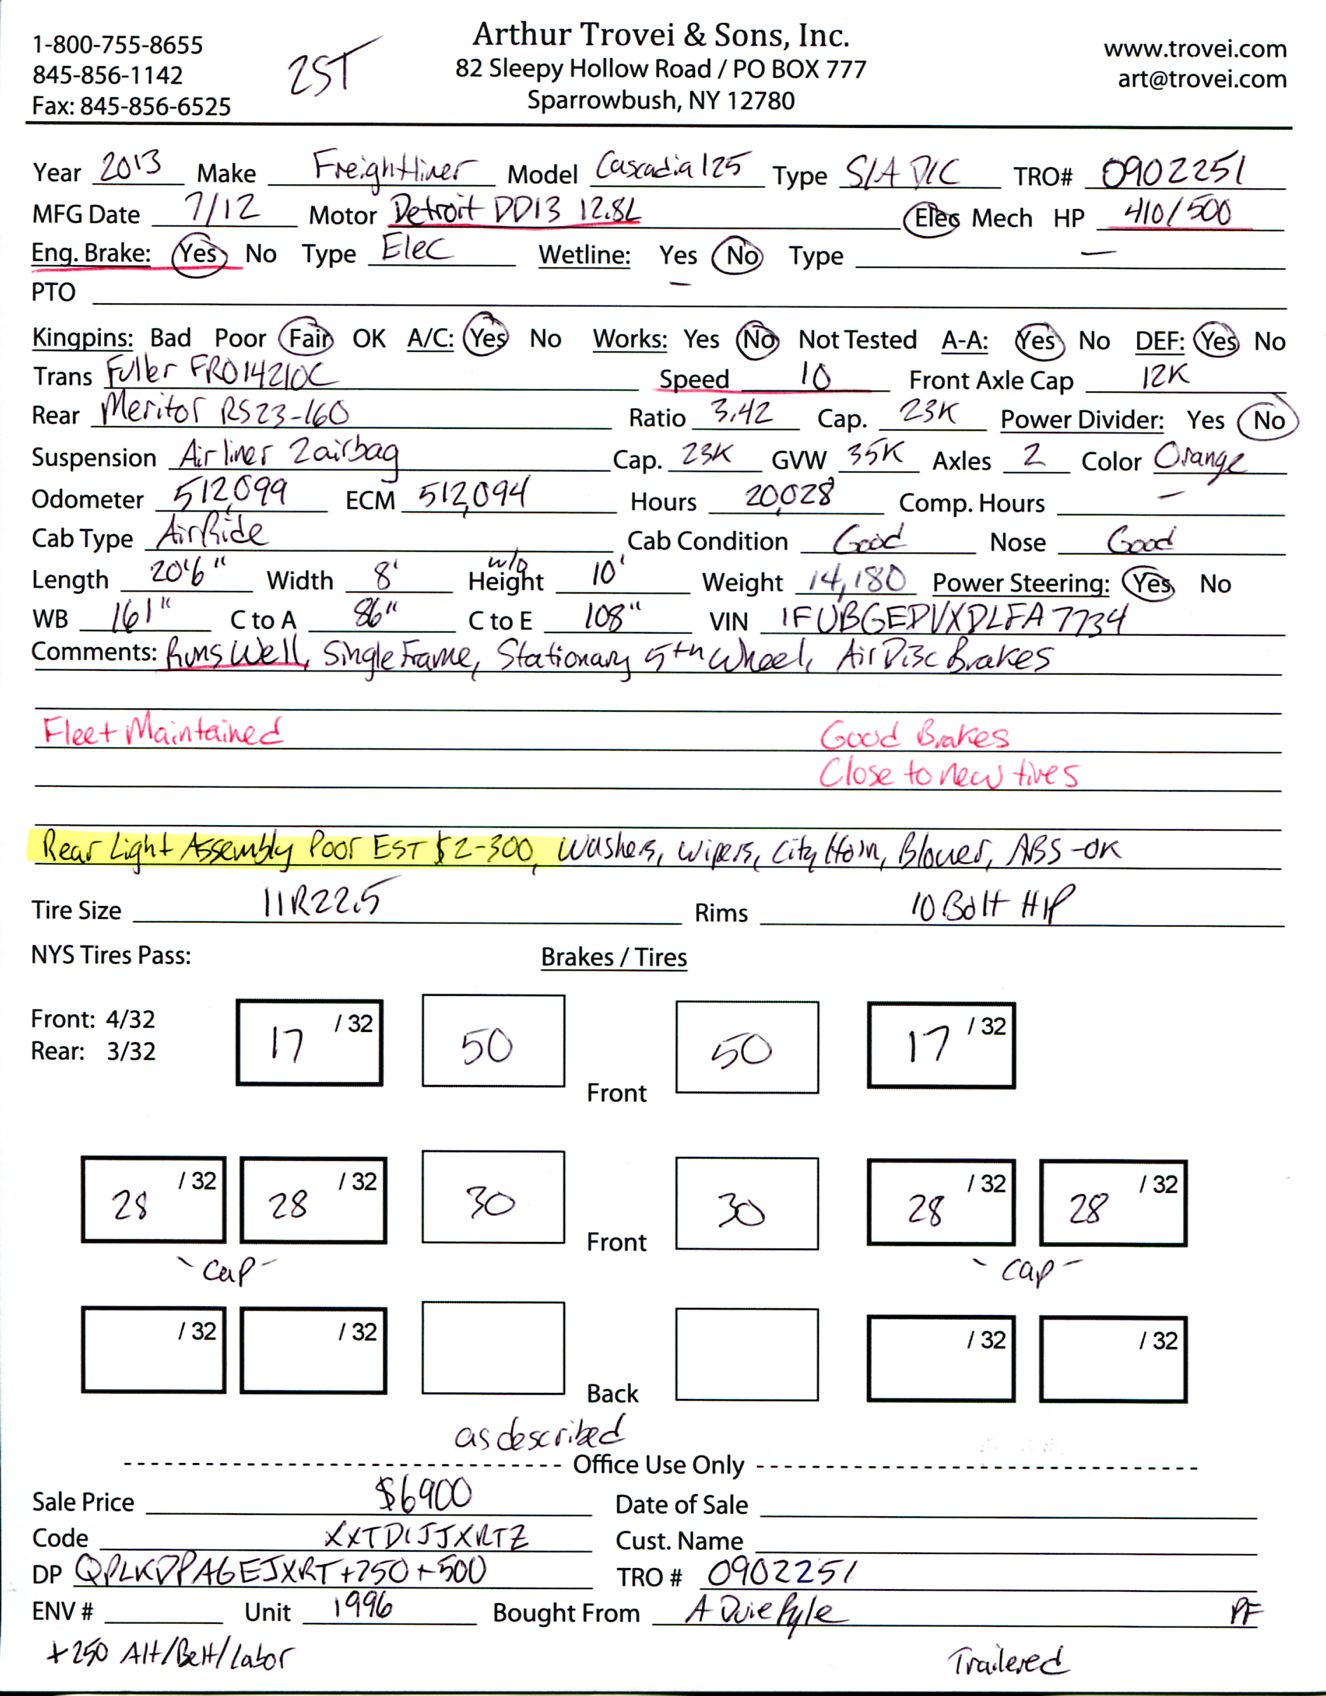 1-800-755-8655
845-856-1142
Fax: 845-856-6525
2ST
Arthur Trovei & Sons, Inc.
82 Sleepy Hollow Road / PO BOX 777
Sparrowbush, NY 12780
www.trovei.com
art@trovei.com
Year 2013 Make Freightliner Model Cascadia 125 Type S/A D/C TRO# 0902251
MFG Date 7/12 Motor Detroit DD13 12.8L Elec Mech HP 410/500
Eng. Brake: Yes No Type Elec Wetline: Yes No Type —
PTO —
Kingpins: Bad Poor Fair OK A/C: Yes No Works: Yes No Not Tested A-A: Yes No DEF: Yes No
Trans Fuller FRO14210C Speed 10 Front Axle Cap 12K
Rear Meritor RS23-160 Ratio 3.42 Cap. 23K Power Divider: Yes No
Suspension Airliner 2airbag Cap. 23K GVW 35K Axles 2 Color Orange
Odometer 512,099 ECM 512,094 Hours 20,028 Comp. Hours —
Cab Type AirRide Cab Condition Good Nose Good
Length 20'6" Width 8' w/o Height 10' Weight 14,180 Power Steering: Yes No
WB 161" C to A 86" C to E 108" VIN 1FUBGEDVXDLFA7734
Comments: Runs Well, Single Frame, Stationary 5th Wheel, Air Disc Brakes
Fleet Maintained Good Brakes
Close to new tires
Rear Light Assembly Poor EST $2-300, Washers, Wipers, City Horn, Blower, ABS-OK
Tire Size 11R22.5 Rims 10 Bolt HP
NYS Tires Pass: Brakes / Tires
Front: 4/32
Rear: 3/32
17 /32 50 Front 50 17 /32
28 /32 28 /32 30 Front 30 28 /32 28 /32
-Cap- -Cap-
/32 /32 Back /32 /32
as described
Office Use Only
Sale Price $6900 Date of Sale
Code XXTDIJJXRTZ Cust. Name
DP QPLKDPAGEJXRT+250+500 TRO # 0902251
ENV # Unit 1996 Bought From A Duie Pyle PF
+250 Alt/Belt/Labor Trailered